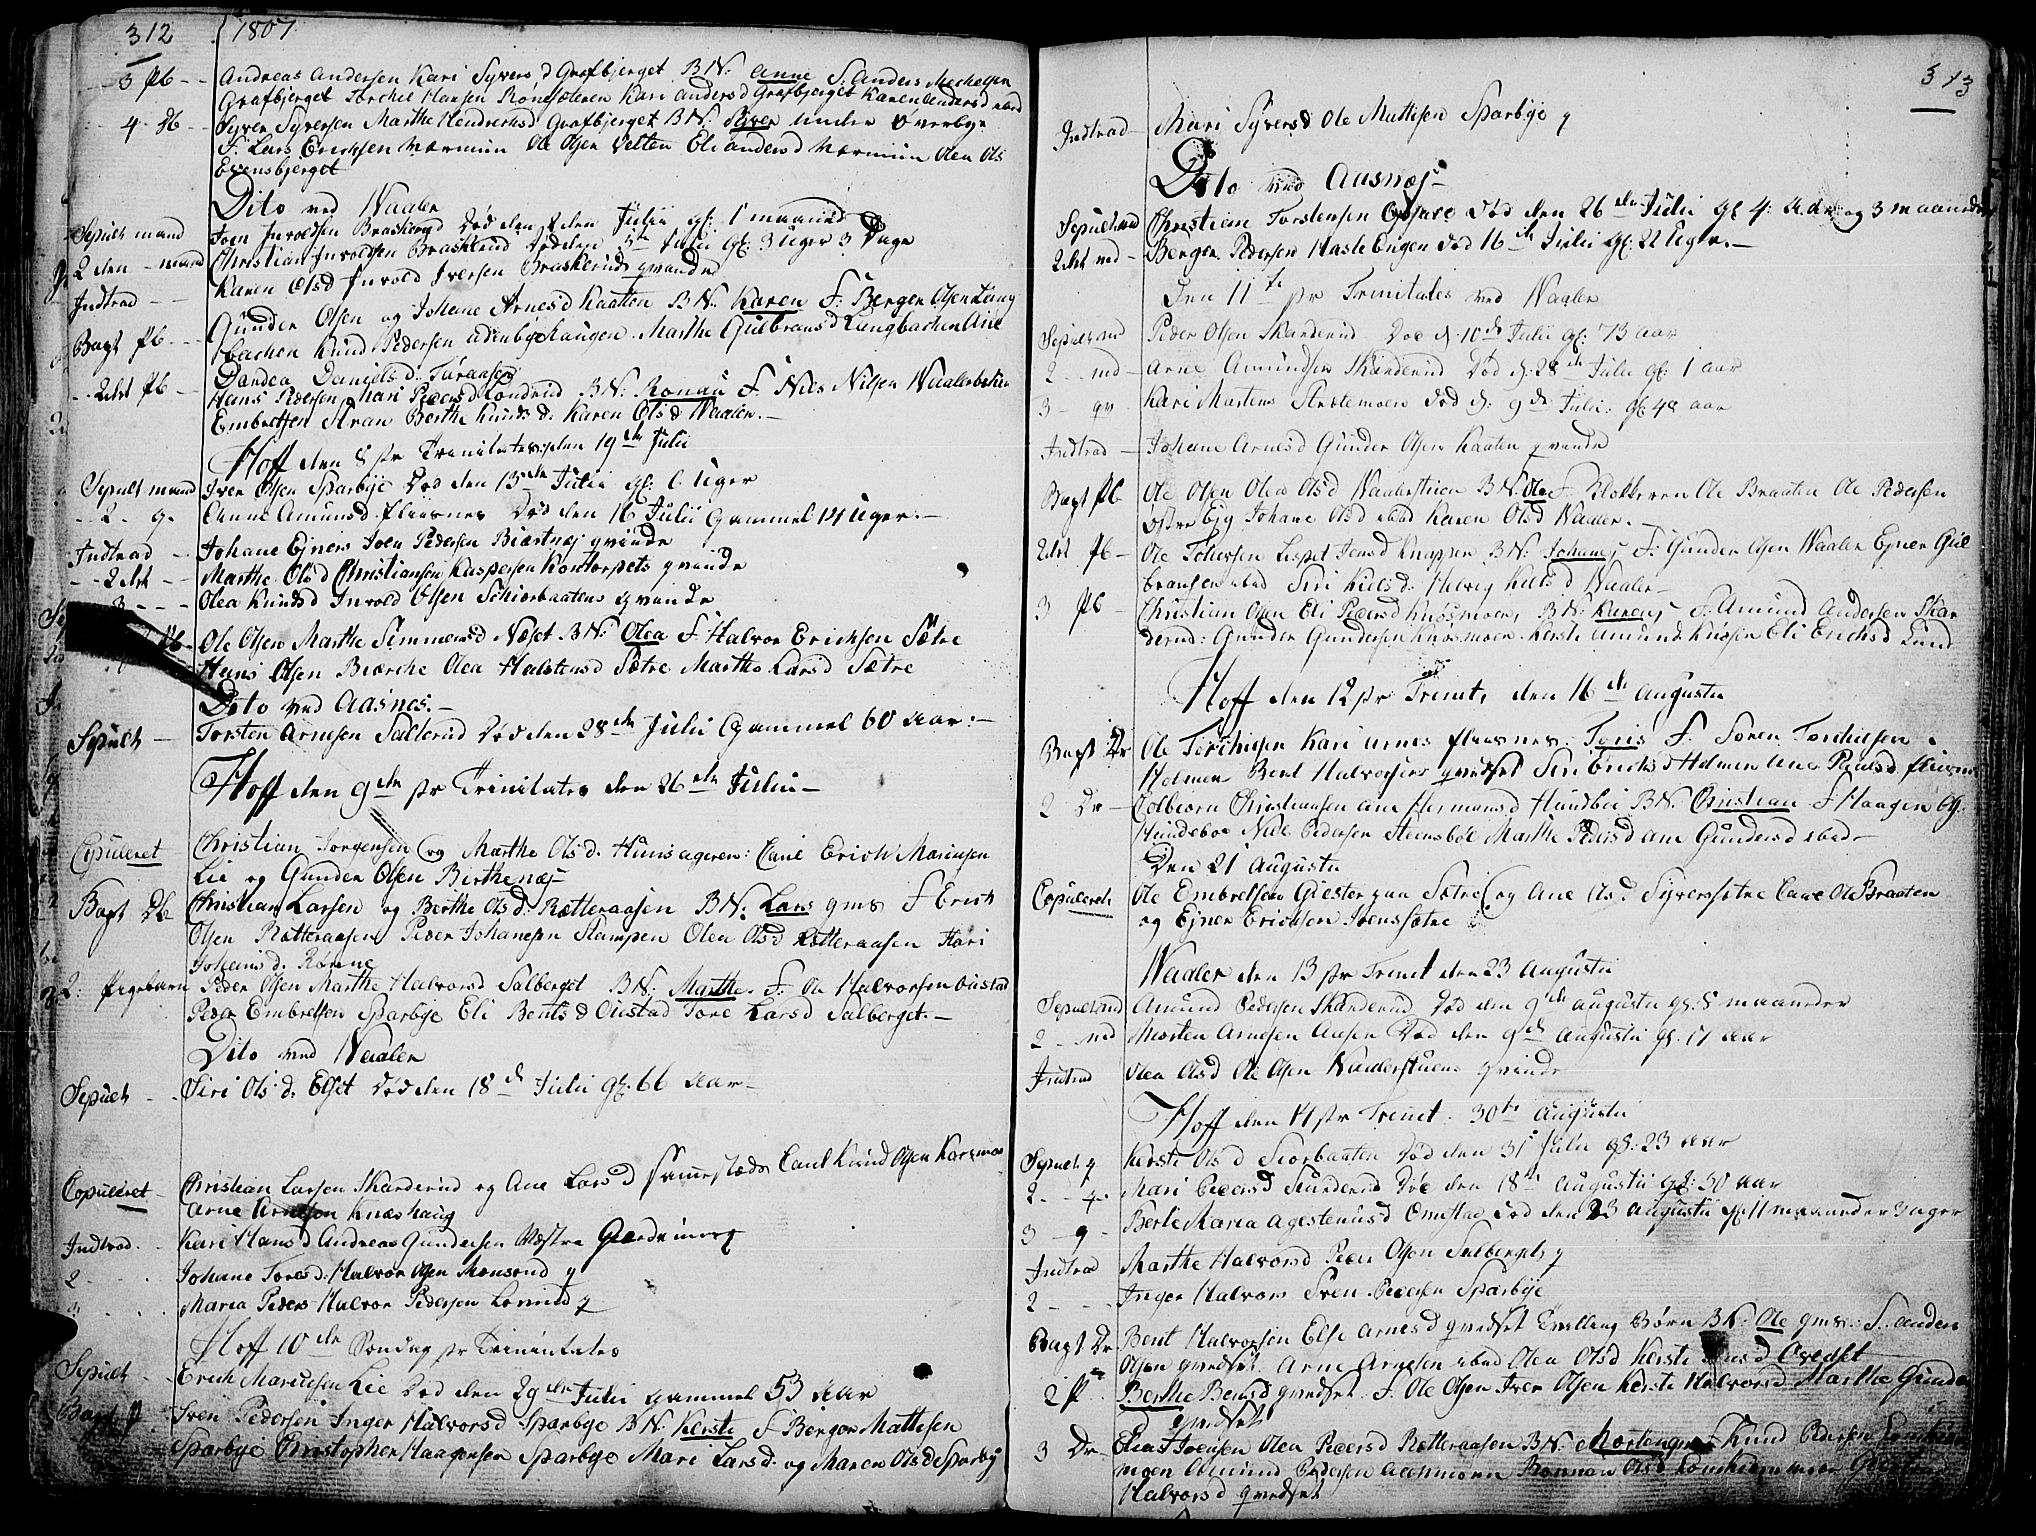 312 1807
3 Pb - - Andreas Andersen Kari Syvers d Grafbjerget BN: Anne F: Anders Mechelsen
Grafbjerget Torchel Hansen Rønesæteren Kari Anders d Grafbjerget Karen Anders d ibid
4 Db - - Syver Syversen Marthe Hendrechs d Grafbjerget BN: Syver under Overbye
F: Lars Ericksen Nærmün Ole Olsen Velten Eli Anders d Nærmün Olea Ols
Evensbjerget
Dito ved Waaler
Sepult mand Joen Involdsen Braskerud Død den 2den Julii gl: 1 maaned
2 den - mand Christian Involdsen Braskerud Død den 3de Julii gl: 3 Uger 3 Dage
Indtrad - - Karen Ols d Invold Iversen Braskeruds qvinde
Bapt Pb - - Gunder Olsen og Johane Arnes d Kaatten BN: Karen F: Berger Olsen Lüng
bachen Knud Pedersen Marthe Gulbrans d Lungbachen Ane
Dordea Daniels d: Turaasen
- - 2det Pb - Hans Pedersen Mari Peders d BN: Ronau F: Niels Nilsen Waalerbekin
Embretsen Berthe Knuds d: Karen Ols d Waaler. -
Hoff den 8 pr Trinitates: den 19de Julii
Sepult mand Iver Olsen Sparbye Død den 13de Julii gl: 6 Uger
- - 2 - q. Amund d Flaesnes Død den 16 Julii Gammel 14 Uger. -
Indtrad - Johane Ejners Joen Pedersen Biærtnæs qvinde
- - 2det - - Marthe Ols d Christiansen Kaspersen Kontorpets qvinde
- 3 - - - Olea Knuds d Invold Olsen Schiørbaatens qvinde
Pb - Ole Olsen Marthe Simmens d Næset BN: Olea F: Halvor Ericksen Sætre
Hans Olsen Biærche Olea Halstens d Sætre Marthe Lars d Sætre
Dito ved Aasnes. -
Sepult - Torsten Arnesen Sætterud Død den 28de Julii Gammel 60 Aar. -
Hoff den 9de pr Trinitates den 26de Julii -
Copuleret Christian Jorgensen og Marthe Ols d. Hunsageren: Caut Erich Marensen
Lie og Gunder Olsen Birthenæs
Bapt Db Christian Larsen og Berthe Ols d: Rætteraasen BN: Lars gms F Erich
Olsen Rætteraasen Peder Johanesen Stampen Olea Ols d Rætteraasen Kari
Johanis d.
2: Pigebarn Peder Olsen Marthe Halvors d Salberget BN: Marthe. F: Ole Halvorsen Oustad
Peder Embretsen Sparbye Eli Bents d Oustad Tore Lars d Salberget. -
Dito ved Waaler
Sepult - - Siri Ols d: Elset Død den 18d Julii gl: 66 Aar -
Copuleret - Christian Larsen Skarderud og Ane Lars d sammesteds Caut Knud Olsen
Arne Arnesen Knæshaug
Indtrad - Kari Hans d Andreas Gundersen Westre q
2 - - - Johane Tores d. Halvor Olsen Monsrud q
3 - - - Maria Peders Halvor Pedersen q
Hoff 10de Søndag pr Trinintates
Sepult - Erich Marensen Lie Død den 29de Julii gammel 53 Aar
Bapt P - Iven Pedersen Inger Halvors d Sparbye BN: Kerste F Berger Mattisen
Sparbye Christopher Haagensen Sparbye Mari Lars d. og Maren Ols d Sparby
313
Indtrad - Mari Syvers d Ole Mattisen Sparbye q
Dito ved Aasnæs -
Sepult md Christiane Torstensen død den 26de Julii gl 4: Aar og 3 maaneder
2det md - Berger Pedersen Hasle Engen død 16de Julii gl: 22 Uger. -
Den 11te pr Trinitates ved Waaler
Sepult md Peder Olsen Skarderud Død d: 10de Julii gl: 73 aar
2 - - md - Arne Amundsen Skarderud Død d: 28de Julii gl: 1 aar
3 - qv Kari Martens død d: 9de Julii: gl: 48 aar
Indtrad - Johane Arnes d Gunder Olsen Kaaten qvinde
Bapt Pb Ole Olsen Olea Ols d Waalerstuen BN: Olea F. Klokkeren Ole Braaten Ole Pedersen
østre Eyg Johane Ols d ibid Karen Ols d Waaler. -
2det Pb - Ole Johansen Lispet Jens d Knappen BN: Johanes F: Gunder Olsen Waaler Ejner Gul
bransen ibid Siri Kiels d: Helvig Kiels d Waaler -
3 Pb - Christian Olsen Eli Peders d Knosmoen, BN: Karen F: Amund Andersen Skar
derud: Gunder Gundersen Knosmoen Kerste Amund Knosen Eli Erichs d Lund
Hoff den 12 pr Trinit, den 16de Augustii
Bapt Dr Ole Torchelsen Kari Arnes Flaesnes Toris F. Soren Torchelsen
Holmen Bent Halvorsens qvedset Siri Erichs d Holmen Ane Pouls d Flaesnes
2 Dr - Colbiørn Christiansen Ane Hermans d Hundbøe BN. Christian F Haagen Ols:
Hundeboe Niels Pedersen Steensbøl Marthe Peders d Ane Gunders d ibid -
Den 21 Augustii
Copuleret Ole Embretsen Giester paa Sætre og Ane Ols d Syversætre Caut Ole Braaten
og Ejner Ericksen Joensætre
Waaler den 13 pr Trinit den 23 Augustii
Sepult md Amund Pedersen Skarderud Død den 9de Augustii gl: 8 maaneder
2 - md Morten Arnesen Aasen Død den 9de Augustii gl: 17 Aar
Indtrad Olea Ols d Ole Olsen Waalerstuens qvinde
Hoff den 14 pr Trinit. 30te Augustii
Sepult q Kerste Ols d Skiorbaaten Død den 31 Julii gl: 23 Aar
2 - - q. Mari Peders d Død den 18de Augustii gl: 50 Aar
3 - q - Berte Maria Agestenus d Oustad død den 23 Augustii gl: 11 maaneder 3 uger
Indtrad Marthe Halvors d Peder Olsen Salbergets q
2 - - - Inger Halvors Iven Pedersen Sparbye
Bapt Dr Bent Halvorsen Else Arnes d qvedset Tvilling Børn BN: Ole gms: F: Anders
Olsen qvedset. Arne Arnesen ibid Olea Ols d Kerste d Qvedset
2 P Berthe Bens d qvedset. F. Ole Olsen Iver Olsen Kerste Halvors d Marthe Gunder
qvedset
3 Dr Elias Joensen Olea Peders d Rætteraasen BN: Morten gms F Knud Pedersen
moen Amund Pedersen Ronnou Ols d
Halvors d qvedset